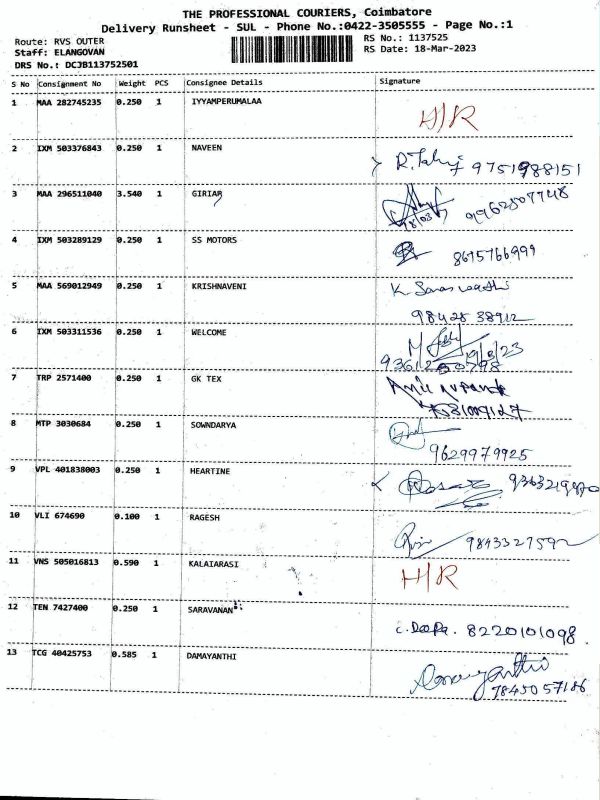 THE PROFESSIONAL COURIERS, Coimbatore
Delivery Runsheet - SUL - Phone No.:0422-3505555 - Page No.:1
Route: RVS OUTER
RS No.: 1137525
Staff: ELANGOVAN
RS Date: 18-Mar-2023
DRS No.: DCJB113752501
S No Consignment No Weight PCS Consignee Details Signature
1 MAA 282745235 0.250 1 IYYAMPERUMALAA
H/R
2 IXM 503376843 0.250 1 NAVEEN
9751988151
3 MAA 296511040 3.540 1 GIRIAR
4 IXM 503289129 0.250 1 SS MOTORS
8675766999
5 MAA 569012949 0.250 1 KRISHNAVENI
K Saraswathi
98428 38912
6 IXM 503311536 0.250 1 WELCOME
7 TRP 2571400 0.250 1 GK TEX
8 MTP 3030684 0.250 1 SOWNDARYA
9629979925
9 VPL 401838003 0.250 1 HEARTINE
10 VLI 674690 0.100 1 RAGESH
9843327592
11 VNS 505016813 0.590 1 KALAIARASI
H/R
12 TEN 7427400 0.250 1 SARAVANAN
8220101098
13 TCG 40425753 0.585 1 DAMAYANTHI
Damayanthi
7845057186